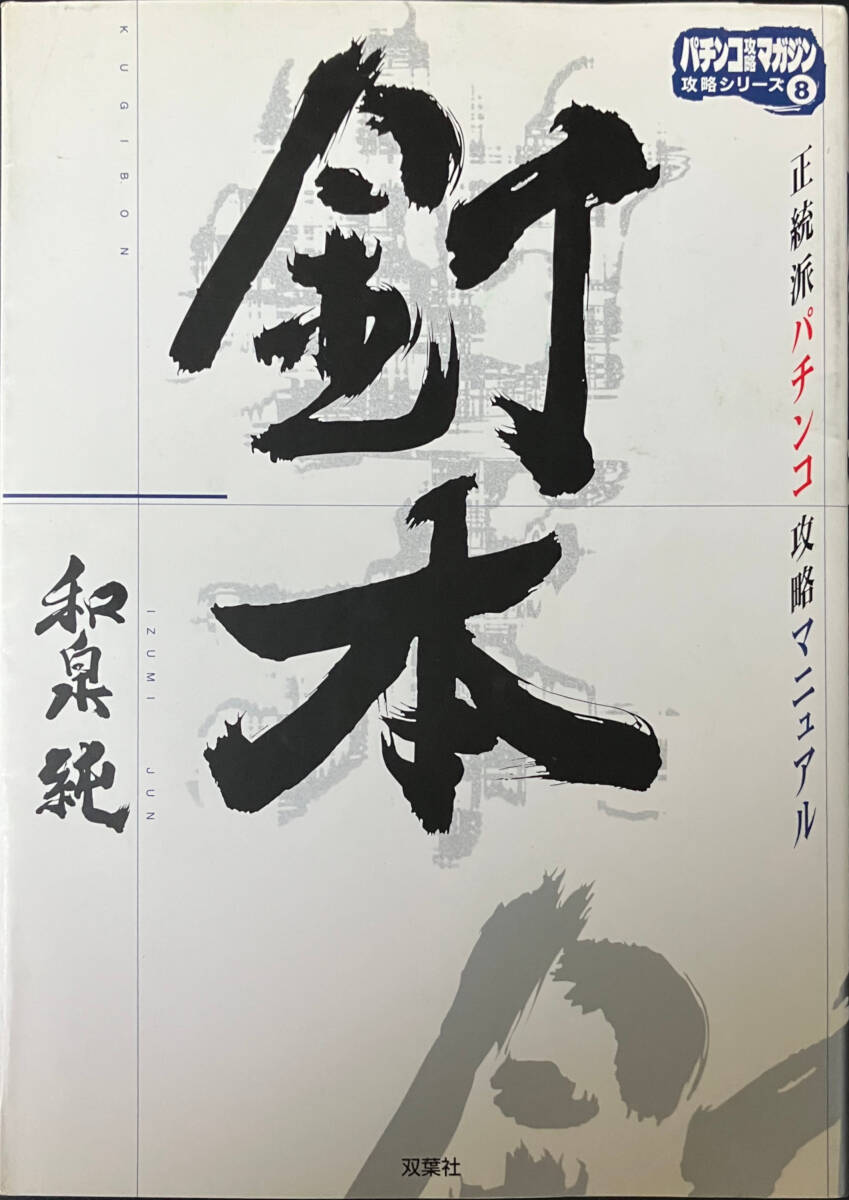 パチンコ攻略マガジン
攻略シリーズ8
正統派パチンコ攻略マニュアル
釘本
KUGIBON
和泉 純
IZUMI JUN
双葉社